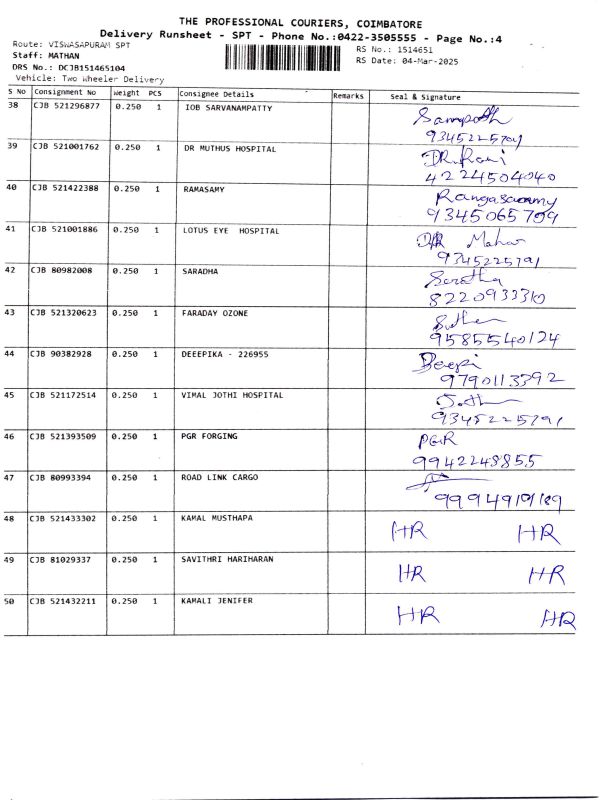 THE PROFESSIONAL COURIERS, COIMBATORE
Delivery Runsheet - SPT - Phone No.:0422-3505555 - Page No.:4
Route: VISWASAPURAM SPT
RS No.: 1514651
Staff: MATHAN
RS Date: 04-Mar-2025
DRS No.: DCJB151465104
Vehicle: Two Wheeler Delivery
S No Consignment No Weight PCS Consignee Details Remarks Seal & Signature
38 CJB 521296877 0.250 1 IOB SARVANAMPATTY Sampath
9345225704
39 CJB 521001762 0.250 1 DR MUTHUS HOSPITAL DR.
42224504040
40 CJB 521422388 0.250 1 RAMASAMY Rangasamy
9345065709
41 CJB 521001886 0.250 1 LOTUS EYE HOSPITAL
9345225791
42 CJB 80982008 0.250 1 SARADHA Saratha
8220933310
43 CJB 521320623 0.250 1 FARADAY OZONE
9585540124
44 CJB 90382928 0.250 1 DEEEPIKA - 226955 Deepi
9790113392
45 CJB 521172514 0.250 1 VIMAL JOTHI HOSPITAL
9345225791
46 CJB 521393509 0.250 1 PGR FORGING PGR
9942248855
47 CJB 80993394 0.250 1 ROAD LINK CARGO
48 CJB 521433302 0.250 1 KAMAL MUSTHAPA HR HR
49 CJB 81029337 0.250 1 SAVITHRI HARIHARAN HR HR
50 CJB 521432211 0.250 1 KAMALI JENIFER HR HR